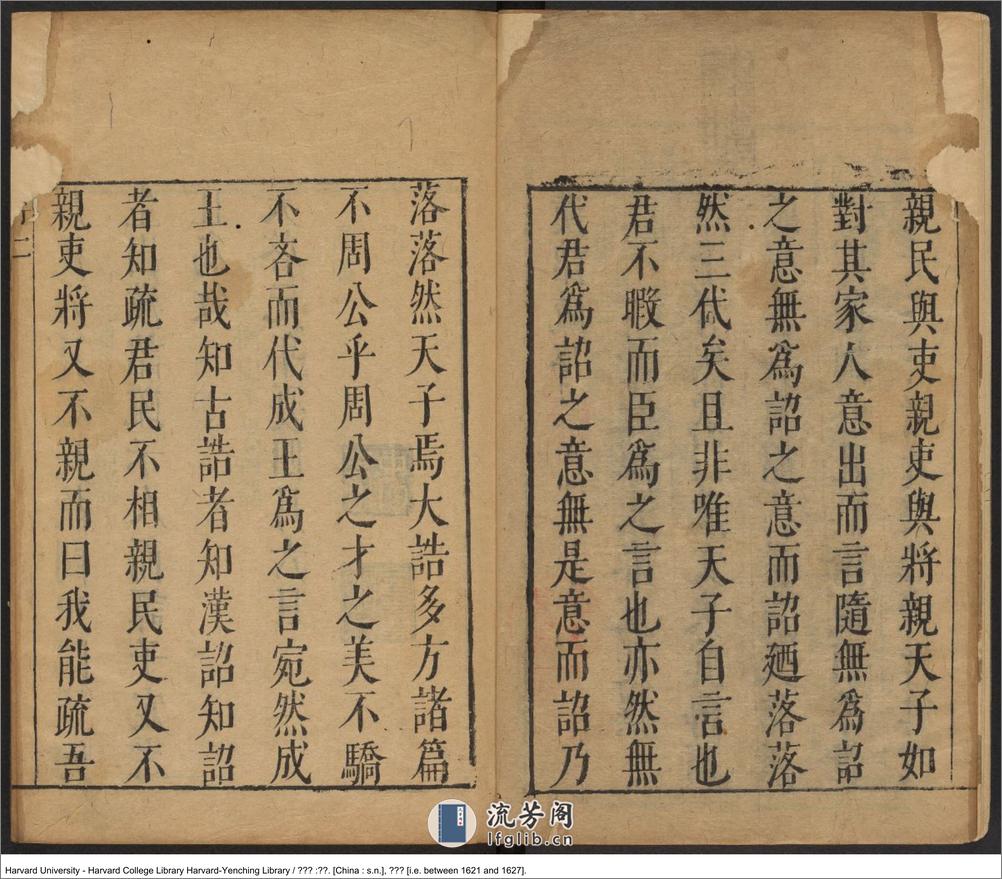 親民與吏親吏與將親天子如
對其家人意出而言隨無為詔
之意無為詔之意而詔廼落落
然三代矣且非唯天子自言也
君不暇而臣為之言也亦然無
代君為詔之意無是意而詔乃
落落然天子焉大誥多方諸篇
不周公乎周公之才之美不驕
不吝而代成王為之言宛然成
王也哉知古誥者知漢詔知詔
者知疏君民不相親民吏又不
親吏將又不親而曰我能疏吾
二
流芳阁
lfglib.cn
Harvard University - Harvard College Library Harvard-Yenching Library / ??? :??. [China : s.n.], ??? [i.e. between 1621 and 1627].